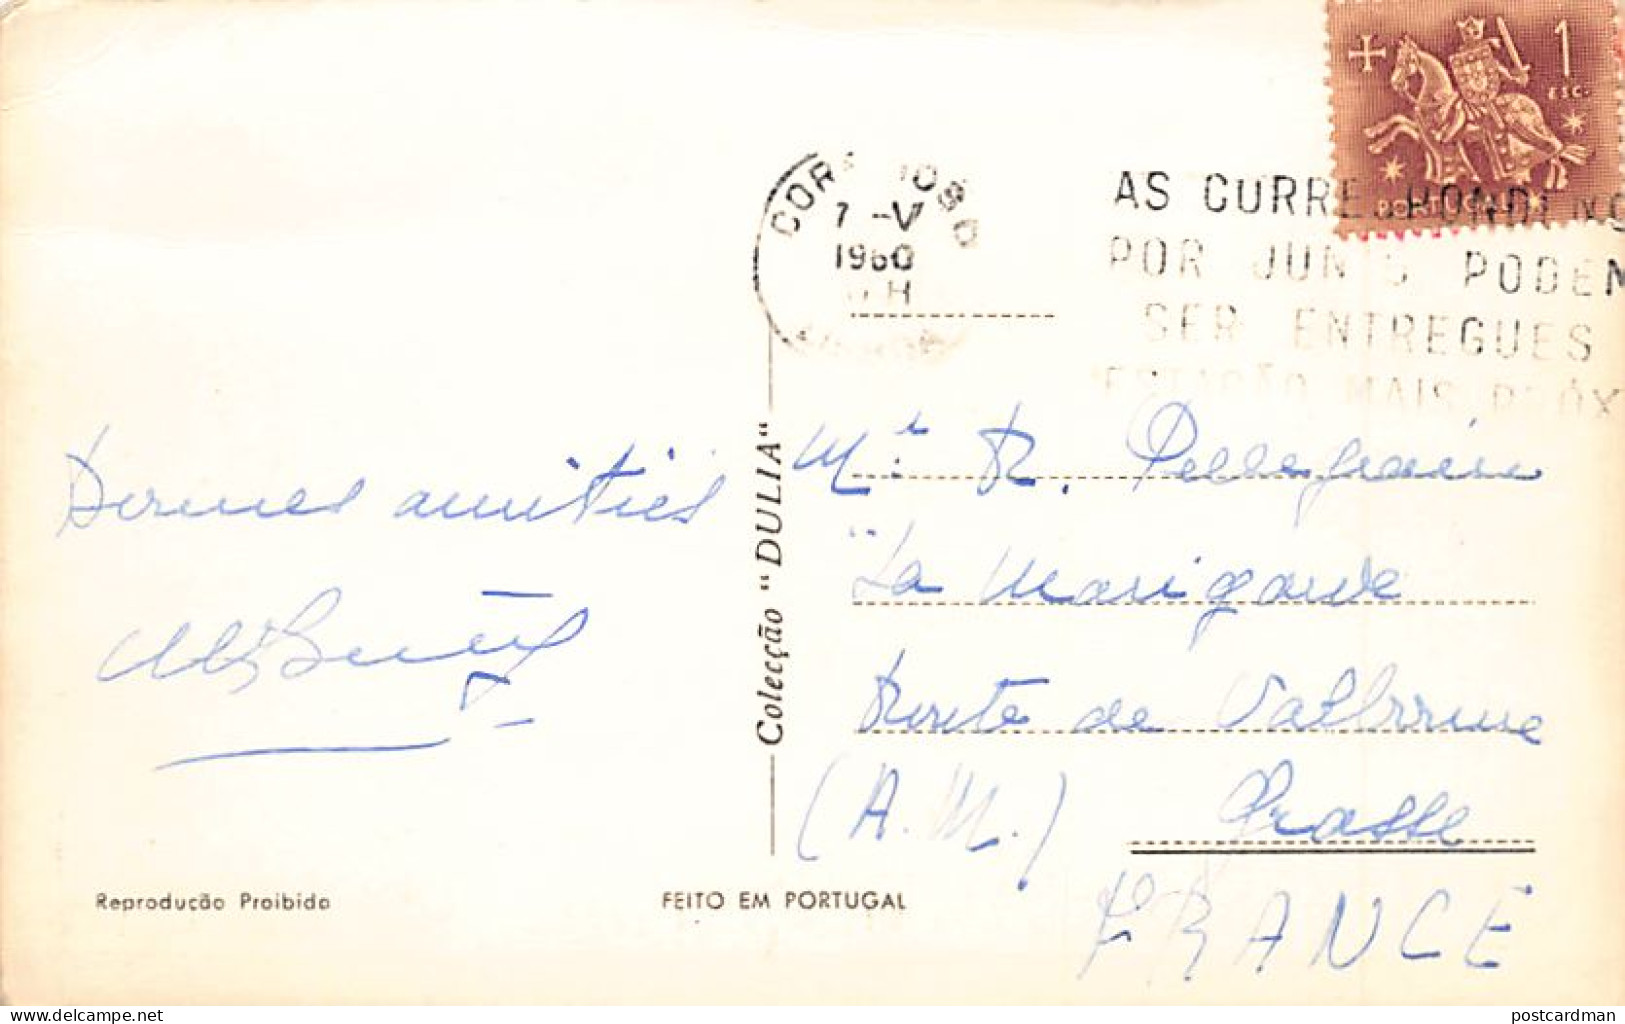 1
ESC.
PORTUGAL
7 -V
1960
H
AS CORRESPONDÊNC
POR JUNTO PODEM
SER ENTREGUES
ESTAÇÃO MAIS PRÓX
Bonnes amitiés
Colecção "DULIA"
Mr R. Pellegrain
"La Marigarde
Route de Valbonne
(A.M.) Grasse
FRANCE
Reprodução Proibida
FEITO EM PORTUGAL
delcampe.net
postcardman